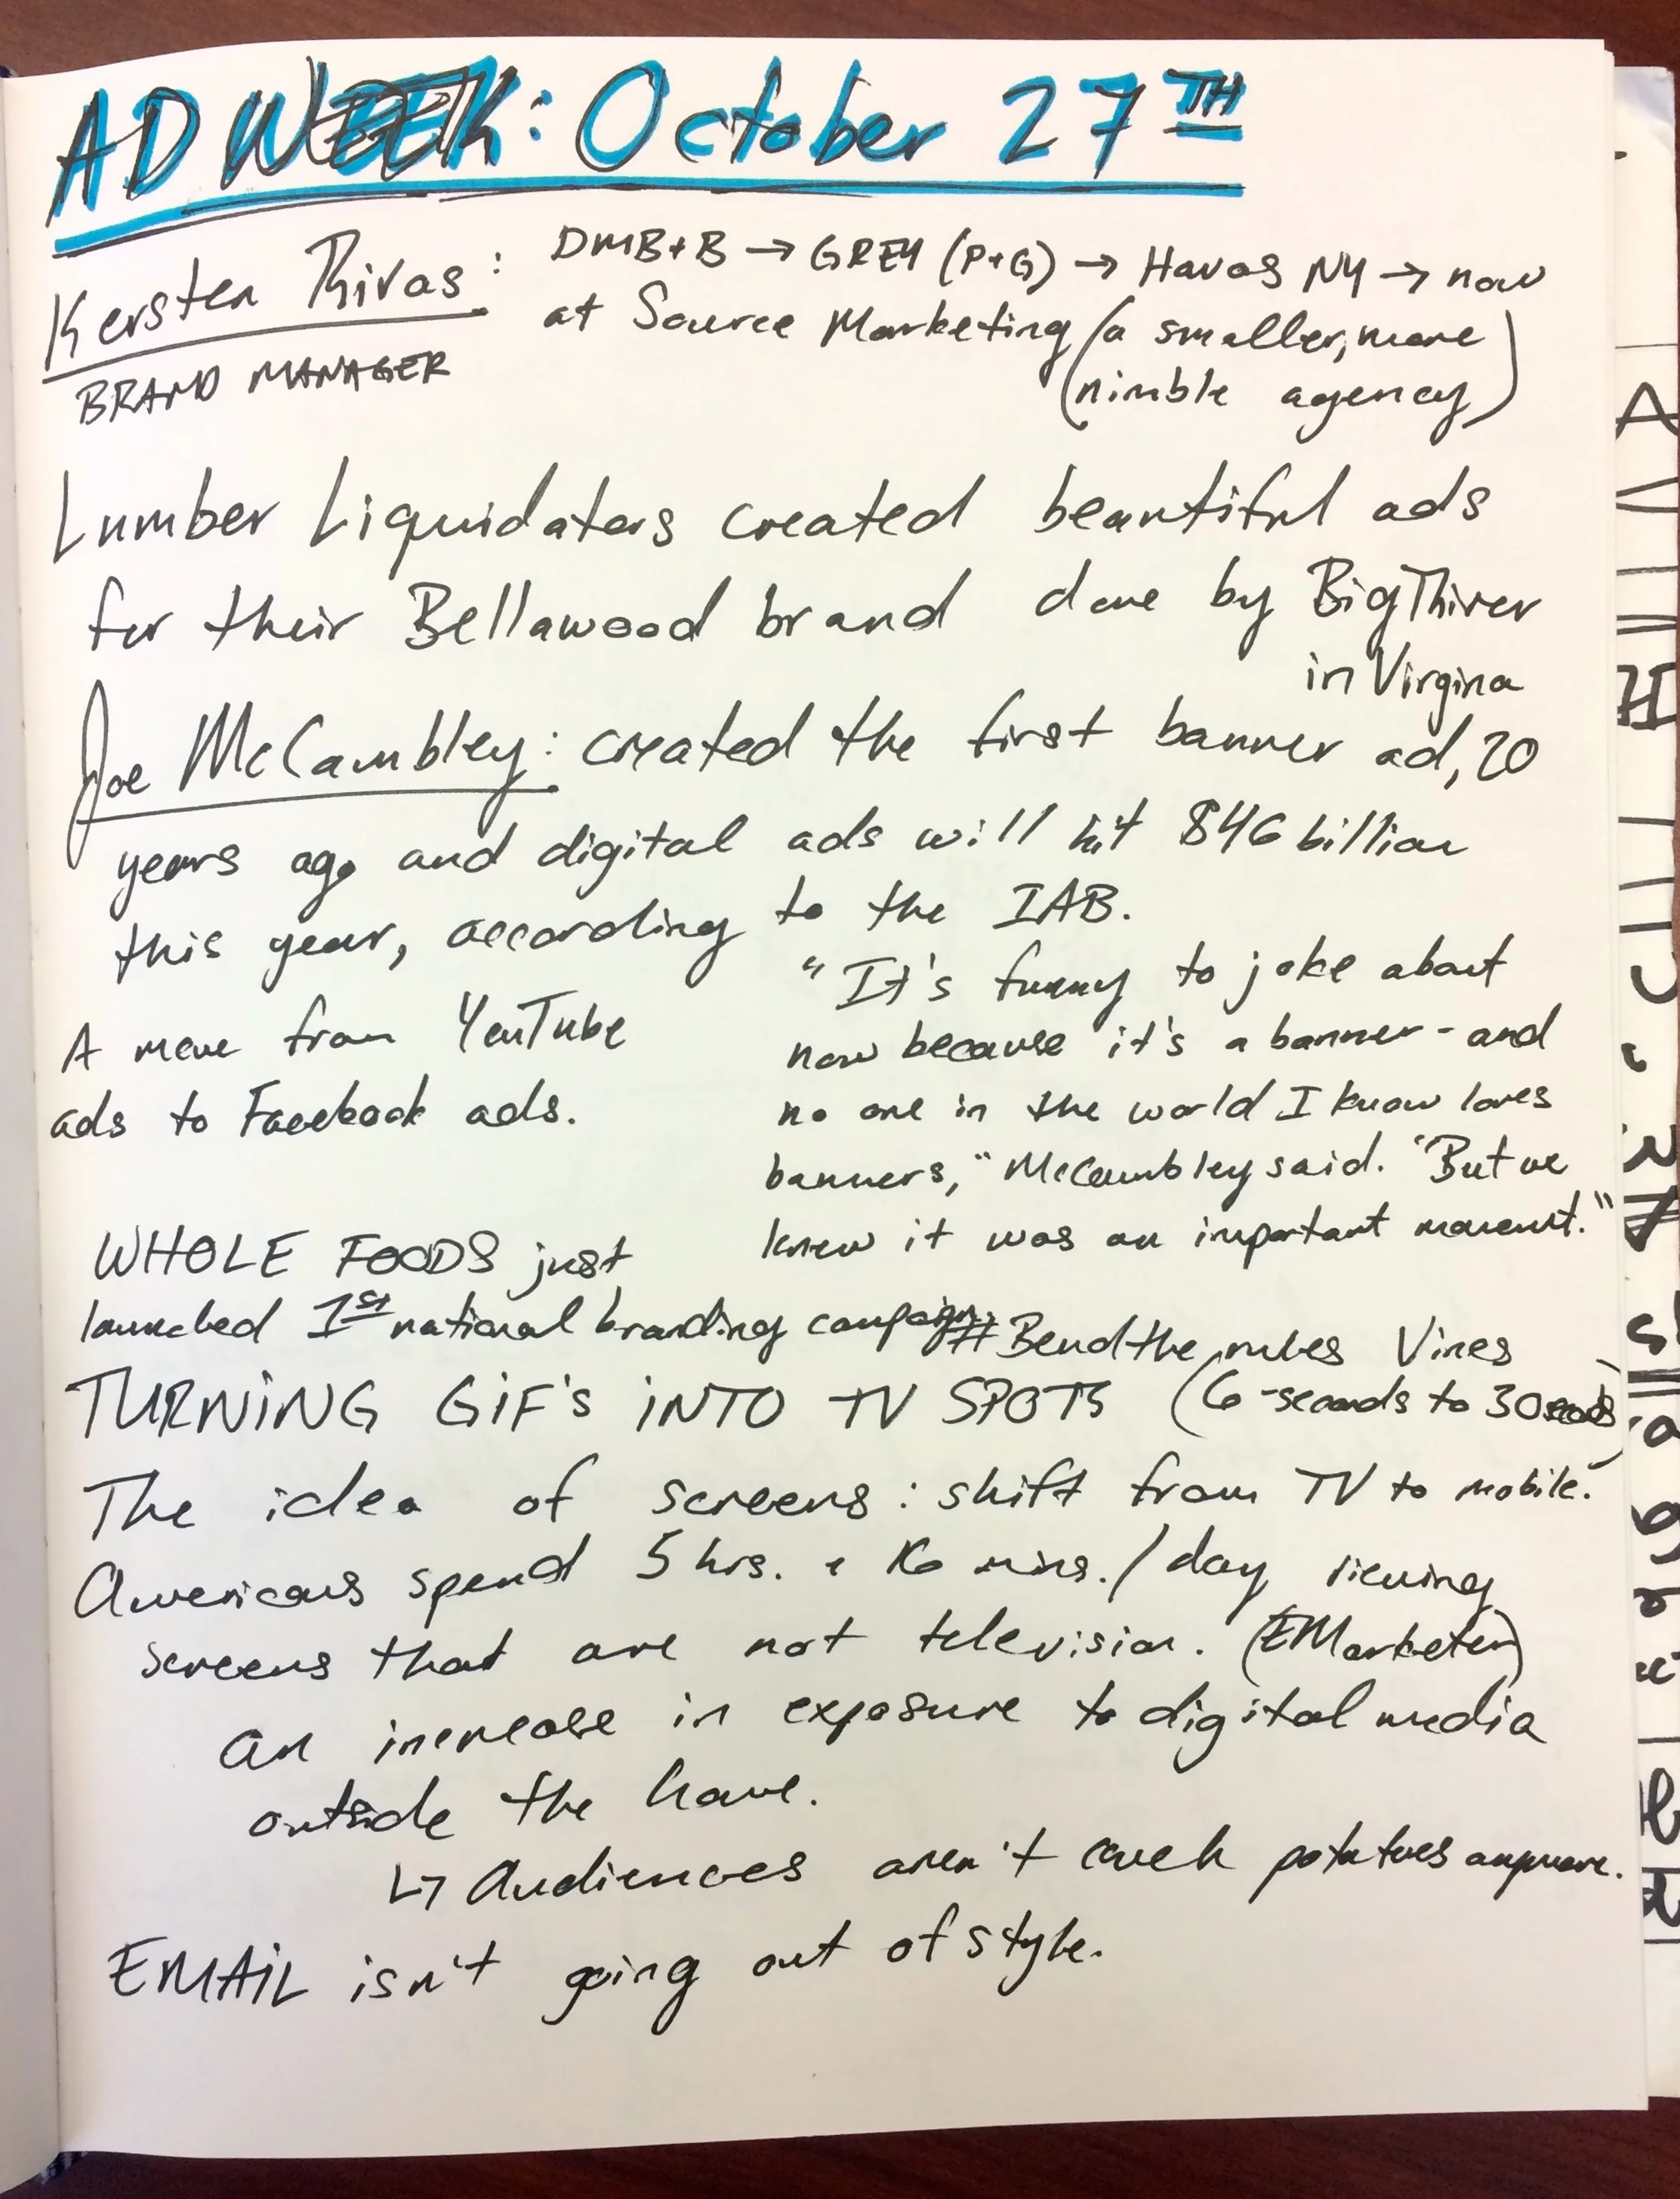 ADWEEK: October 27TH
Kersten Rivas:
BRAND MANAGER
DMB+B → GREY (P+G) → Havas NY → now
at Source Marketing (a smaller, more
nimble agency)
Lumber Liquidators created beautiful ads
for their Bellawood brand done by Big River
in Virgina
Joe McCambley: created the first banner ad, 20
years ago and digital ads will hit $46 billion
this year, according to the IAB.
A move from YouTube
ads to Facebook ads.
"It's funny to joke about
now because it's a banner - and
no one in the world I know loves
banners," McCambley said. "But we
knew it was an important moment."
WHOLE FOODS just
launched 1st national branding campaign
#Bendtherules Vines
TURNING GIF's INTO TV SPOTS (6-seconds to 30 seconds)
The idea of screens: shift from TV to mobile.
Americans spend 5 hrs. + 16 mins. / day viewing
screens that are not television. (EMarketer)
an increase in exposure to digital media
outside the home.
↳ Audiences aren't couch potatoes anymore.
EMAIL isn't going out of style.